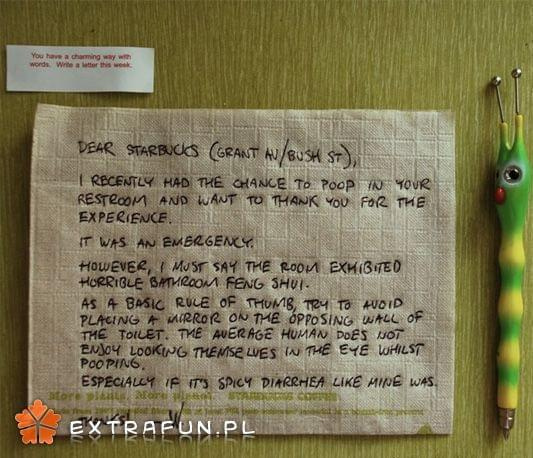 You have a charming way with
words. Write a letter this week.
DEAR STARBUCKS (GRANT AV/BUSH ST),
I RECENTLY HAD THE CHANCE TO POOP IN YOUR
RESTROOM AND WANT TO THANK YOU FOR THE
EXPERIENCE.
IT WAS AN EMERGENCY.
HOWEVER, I MUST SAY THE ROOM EXHIBITED
HORRIBLE BATHROOM FENG SHUI.
AS A BASIC RULE OF THUMB, TRY TO AVOID
PLACING A MIRROR ON THE OPPOSING WALL OF
THE TOILET. THE AVERAGE HUMAN DOES NOT
ENJOY LOOKING THEMSELVES IN THE EYE WHILST
POOPING.
ESPECIALLY IF IT'S SPICY DIARRHEA LIKE MINE WAS.
More plants. More planet. STARBUCKS COFFEE
THANKS!
EXTRAFUN.PL